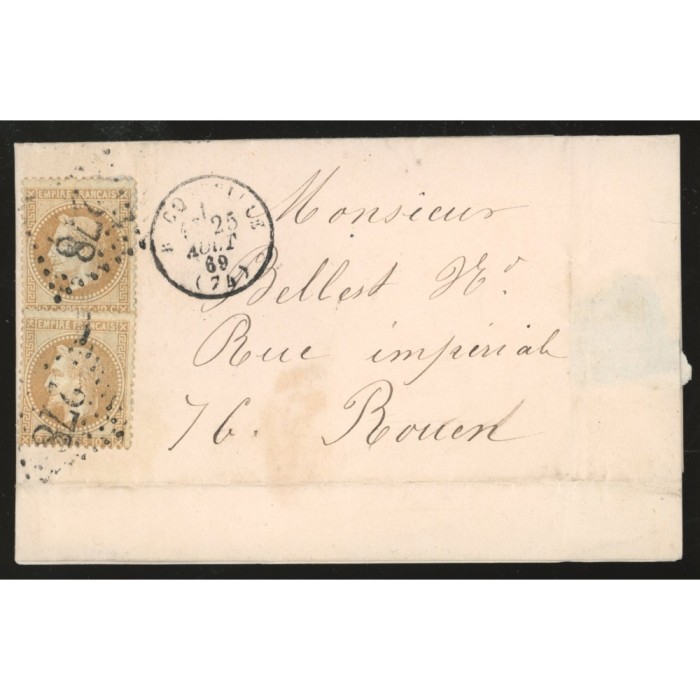 EMPIRE FRANÇAIS
278
25
AOUT
69
(74)
EMPIRE FRANÇAIS
278
Monsieur
Bellest Nd
Rue impériale
76. Rouen